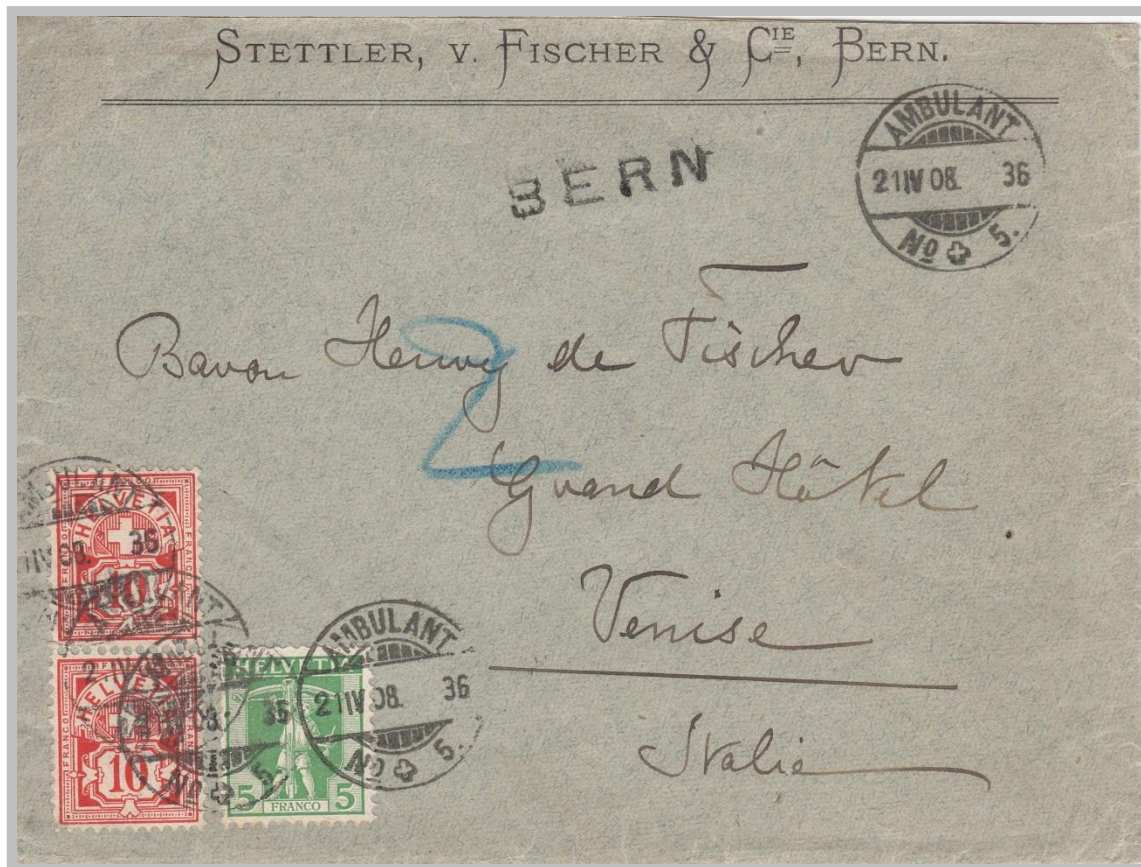 STETTLER, V. FISCHER & CIE, BERN.
AMBULANT
21 IV 08. 36
No 5.
BERN
Baron Henry de Fischer
2
Grand Hôtel
Venise
Italie
HELVETIA
FRANCO
10
36
HELVETIA
FRANCO
10
No 5.
HELVETIA
5 FRANCO 5
AMBULANT
21 IV 08. 36
No 5.